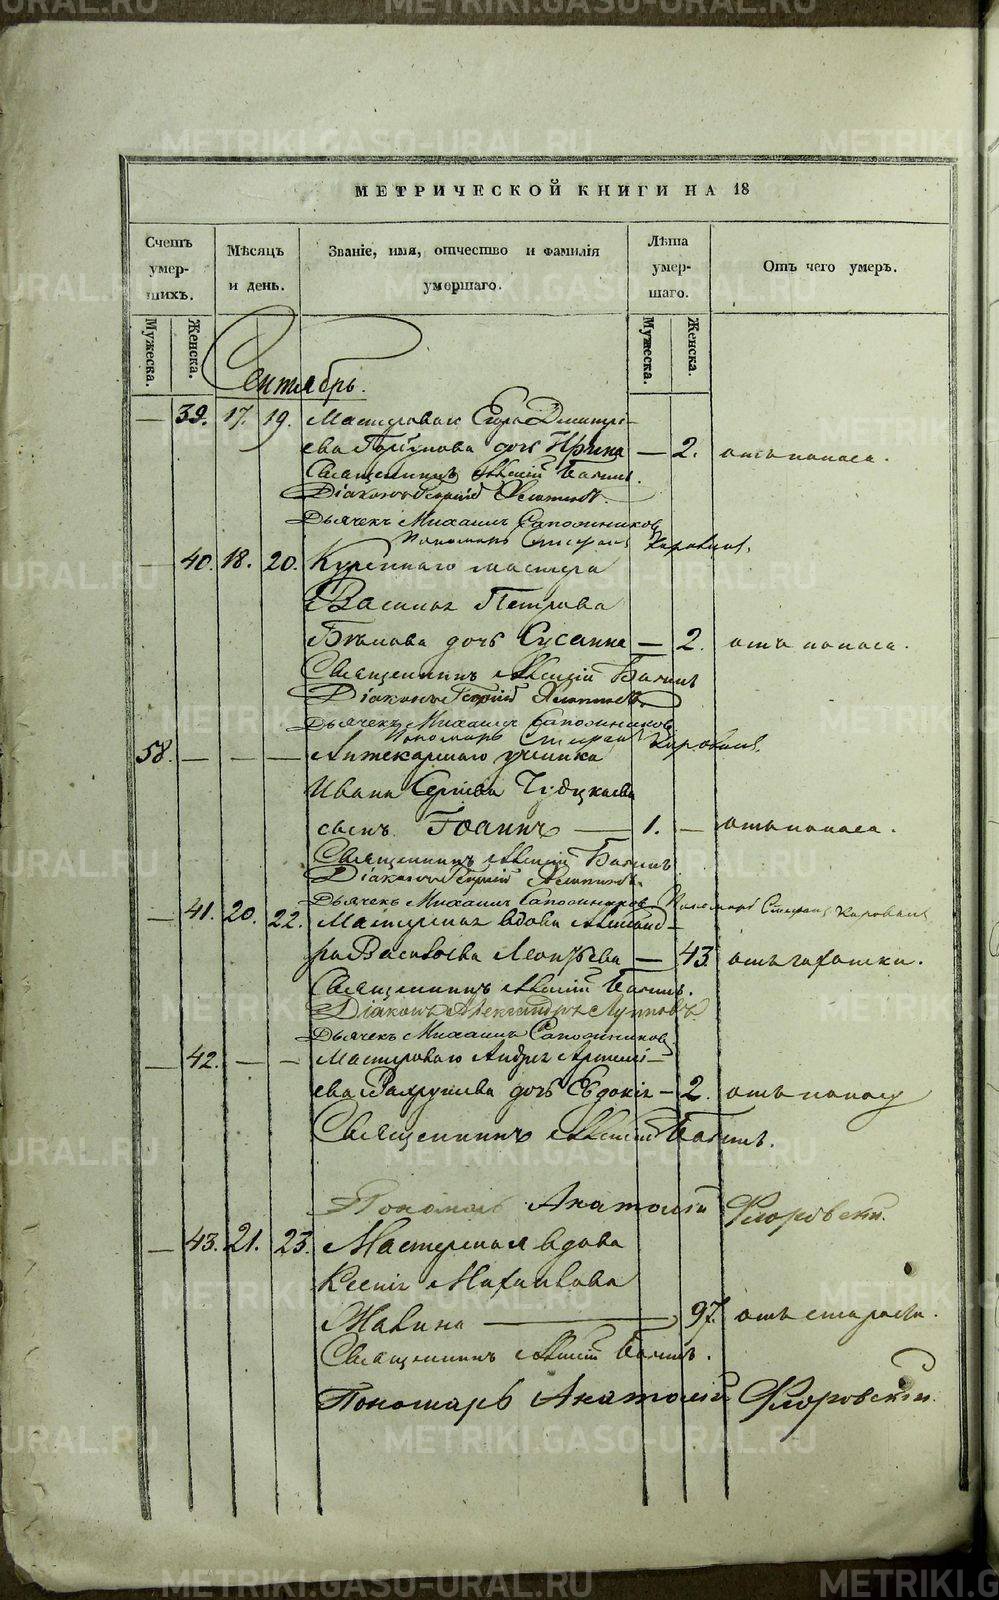 МЕТРИЧЕСКОЙ КНИГИ НА 18
Счетъ умер-шихъ.
Мѣсяцъ и день.
Званіе, имя, отчество и фамилія умершаго.
Лѣта умер-шаго.
Отъ чего умеръ.
Мужеска.
Женска.
Мужеска.
Женска.
Сентябрь.
— 39. 17. 19. Мастероваго Егора Дмитрі-
ева дочь Ирина — 2. отъ поноса.
Священникъ Алексій
Діаконъ Георгій
Дьячекъ Михаилъ Сапожниковъ
Пономарь Стефанъ Коровинъ.
— 40. 18. 20. Куреннаго мастера
Василья Петрова
Бѣлова дочь Сусанна — 2. отъ поноса.
Священникъ Алексій
Діаконъ Георгій
Дьячекъ Михаилъ Сапожниковъ
Пономарь Стефанъ Коровинъ.
58. — — — Аптекарскаго ученика
Ивана Сергѣева
сынъ Іоаннъ — 1. — отъ поноса.
Священникъ Алексій
Діаконъ Георгій
Дьячекъ Михаилъ Сапожниковъ Пономарь Стефанъ Коровинъ
— 41. 20. 22. Мастерская вдова Александ-
ра Васильева Леонтьева — 43. отъ чахотки.
Священникъ Алексій
Діаконъ Александръ Лупповъ
Дьячекъ Михаилъ Сапожниковъ
— 42. — — Мастероваго Андрея Артемі-
ева Вахрушева дочь Евдокія — 2. отъ поносу
Священникъ Алексій
Пономарь Анатолій Флоровскій.
— 43. 21. 23. Мастерская вдова
Ксенія Михайлова
— 97. отъ старости.
Священникъ Алексій
Пономарь Анатолій Флоровскій.
METRIKI.GASO-URAL.RU